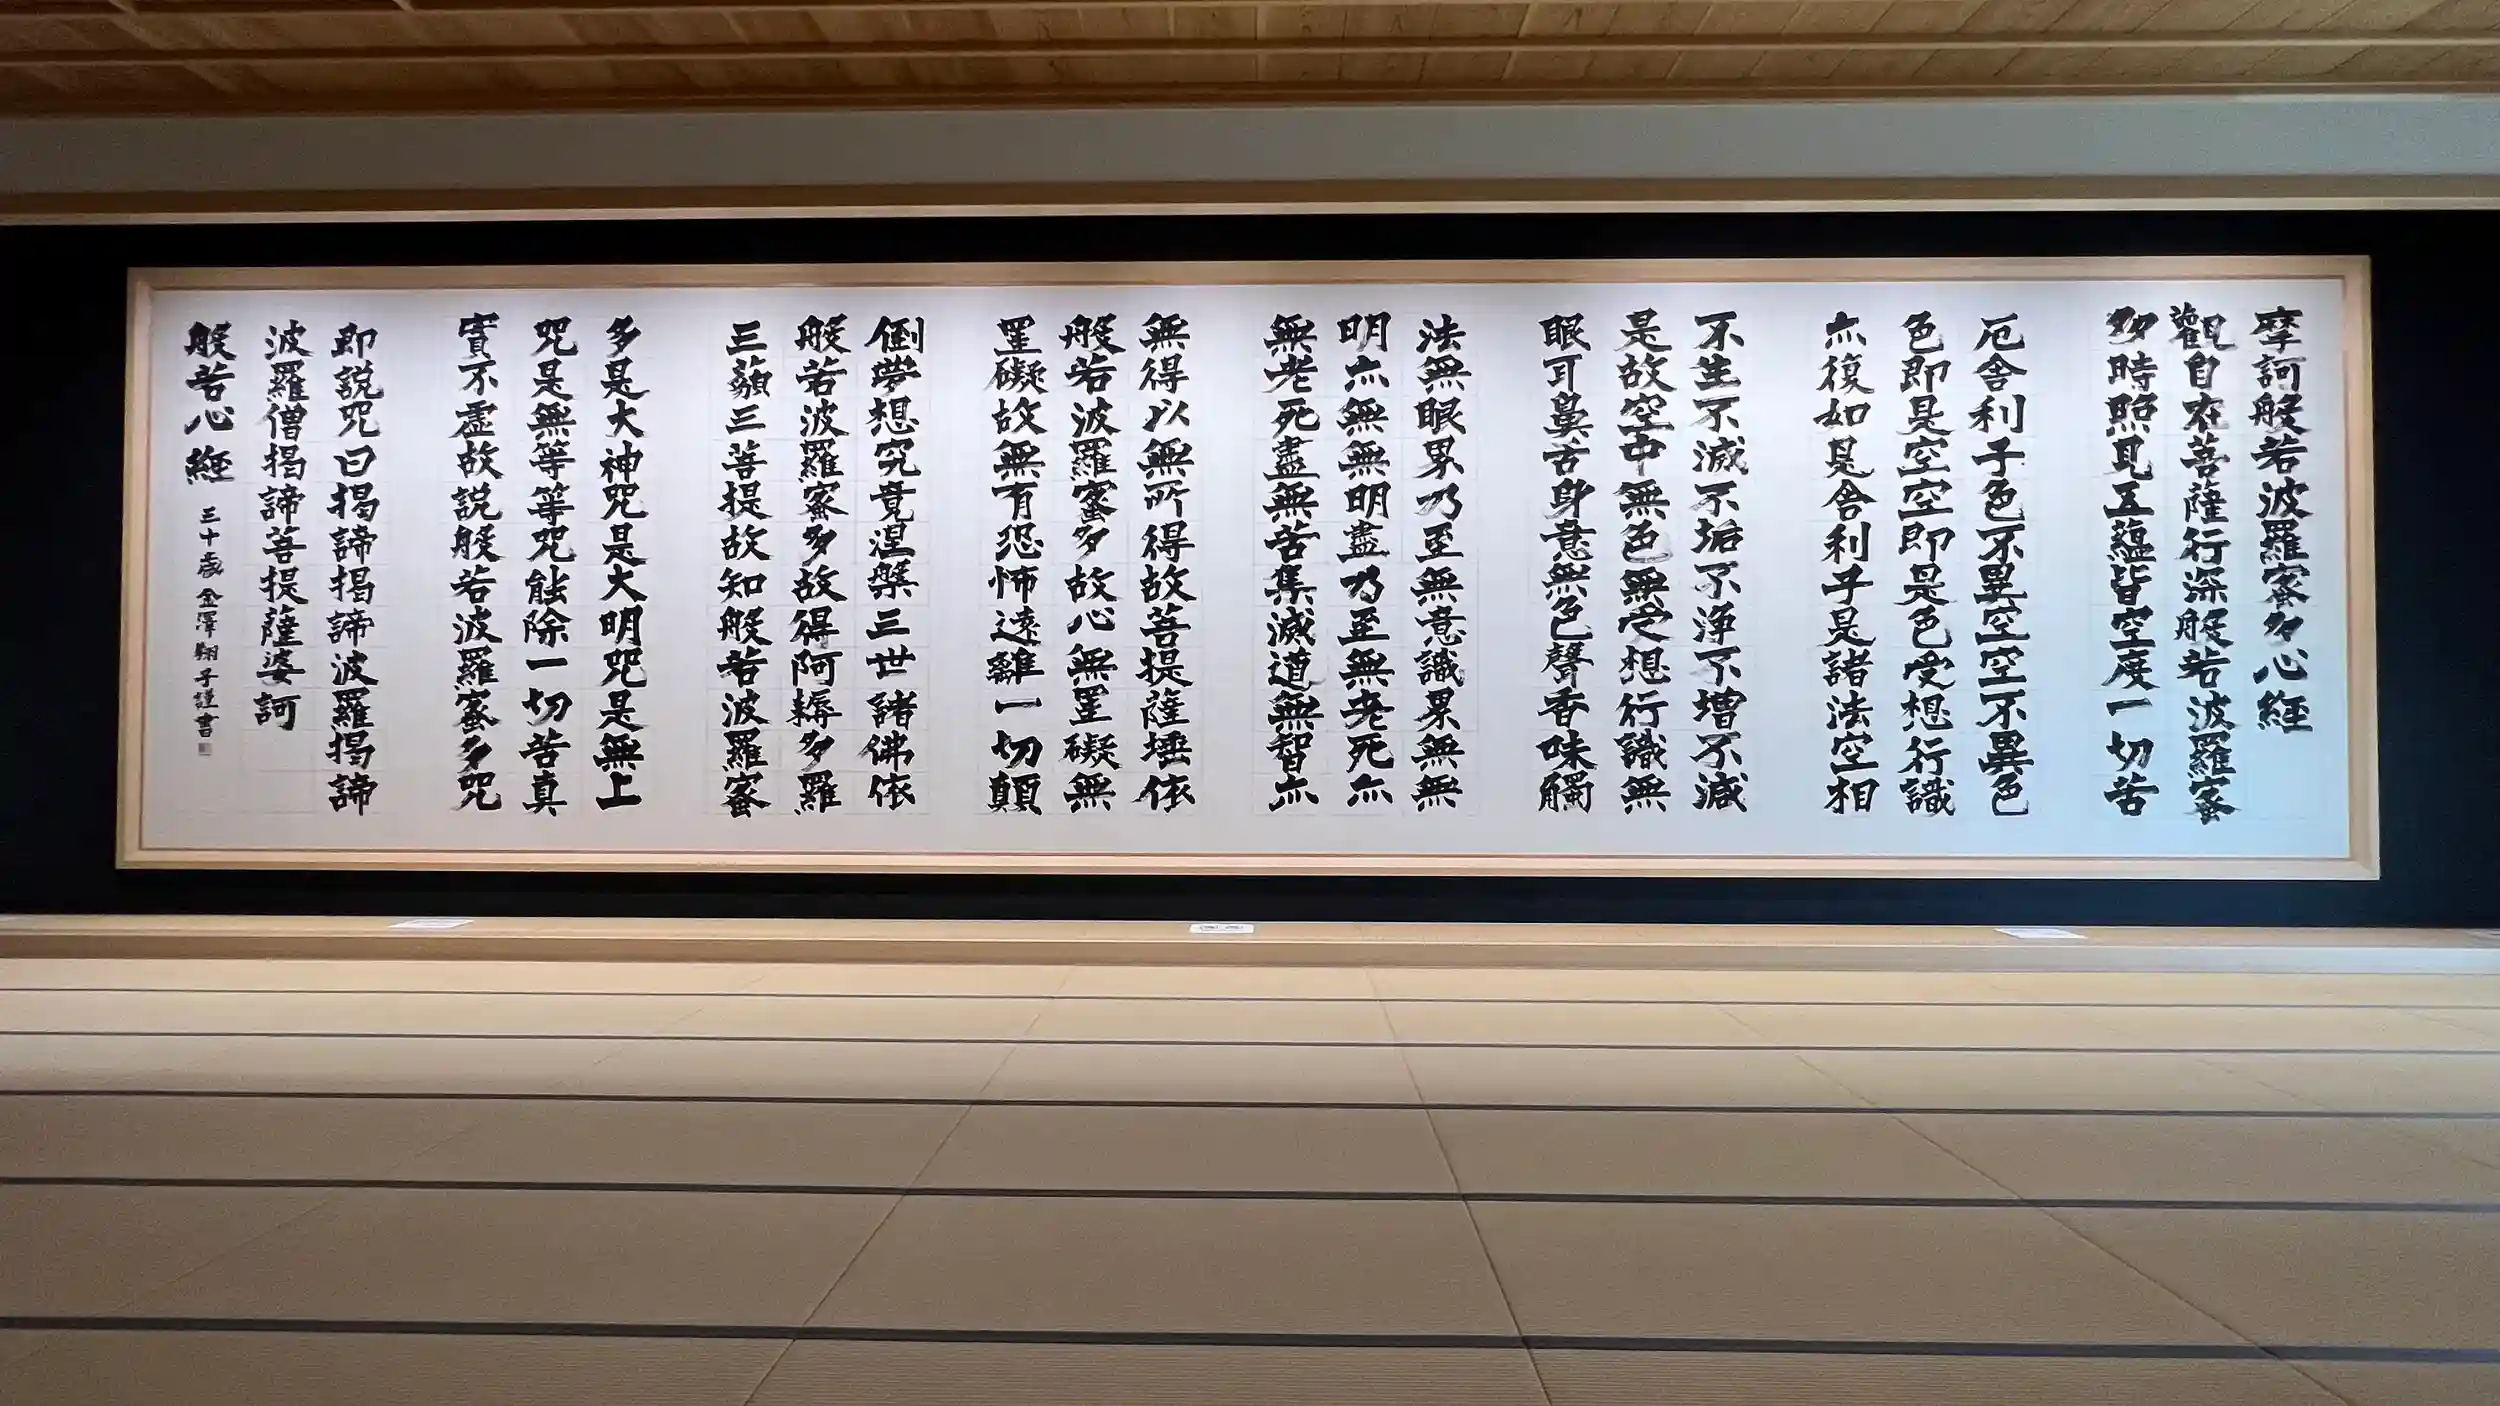 摩訶般若波羅蜜多心經
觀自在菩薩行深般若波羅蜜
多時照見五蘊皆空度一切苦
厄舎利子色不異空空不異色
色即是空空即是色受想行識
亦復如是舎利子是諸法空相
不生不滅不垢不浄不増不減
是故空中無色無受想行識無
眼耳鼻舌身意無色聲香味觸
法無眼界乃至無意識界無無
明亦無無明盡乃至無老死亦
無老死盡無苦集滅道無智亦
無得以無所得故菩提薩埵依
般若波羅蜜多故心無罣礙無
罣礙故無有恐怖遠離一切顛
倒夢想究竟涅槃三世諸佛依
般若波羅蜜多故得阿耨多羅
三藐三菩提故知般若波羅蜜
多是大神咒是大明咒是無上
咒是無等等咒能除一切苦真
實不虚故説般若波羅蜜多咒
即説咒曰掲諦掲諦波羅掲諦
波羅僧掲諦菩提薩婆訶
般若心經
三十歳 金澤翔子謹書